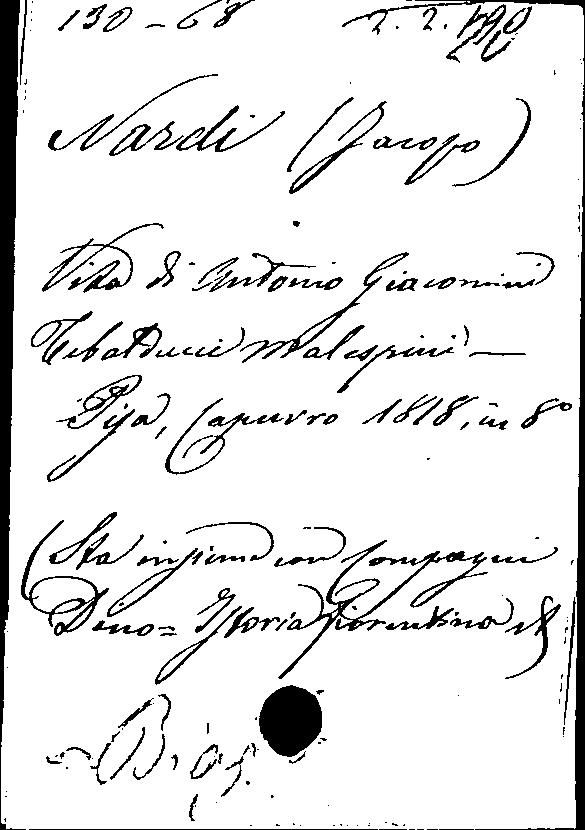 130-68 2. 2.
Nardi (Jacopo)
Vita di Antonio Giacomini
Tebalducci Malespini —
Pisa, Capurro 1818, in 8°
(Sta insieme con Compagni
Dino = Istoria Fiorentina